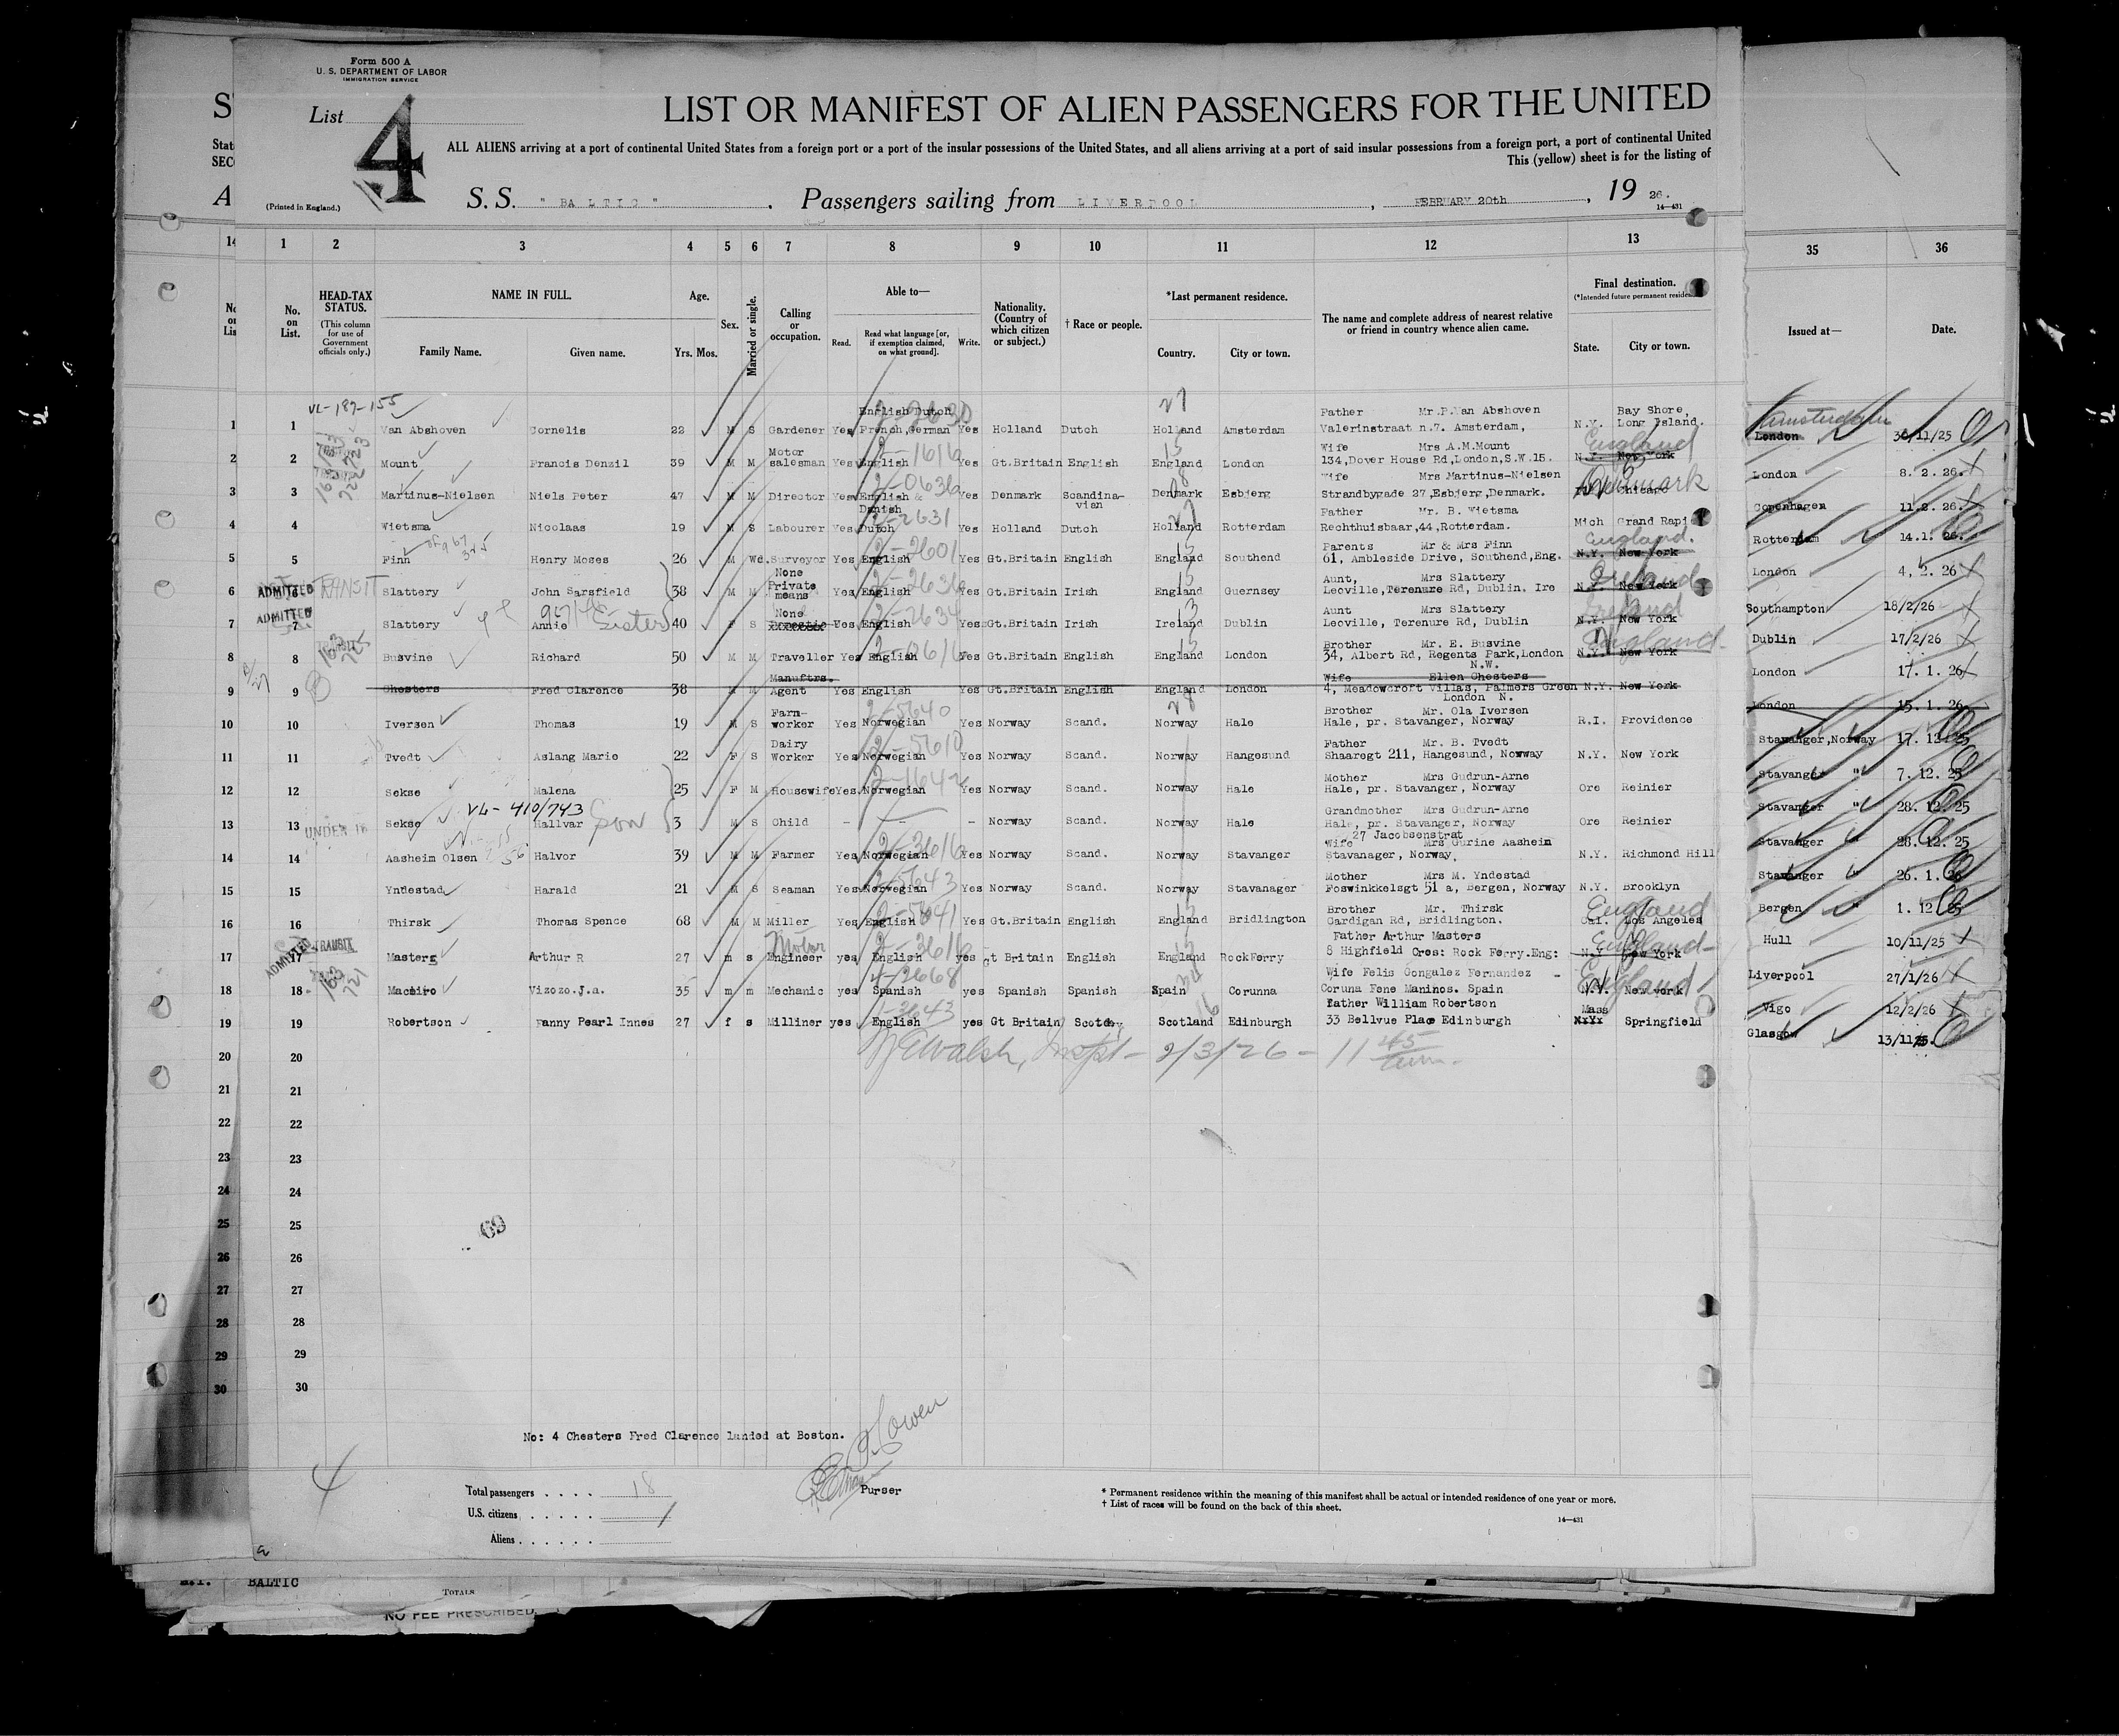 Form 500 A
U. S. DEPARTMENT OF LABOR
IMMIGRATION SERVICE
List 4
LIST OR MANIFEST OF ALIEN PASSENGERS FOR THE UNITED
ALL ALIENS arriving at a port of continental United States from a foreign port or a port of the insular possessions of the United States, and all aliens arriving at a port of said insular possessions from a foreign port, a port of continental United
This (yellow) sheet is for the listing of
(Printed in England.)
S. S. " BALTIC " . Passengers sailing from LIVERPOOL , FEBRUARY 20th , 19 26.
14—431
1 2 3 4 5 6 7 8 9 10 11 12 13 35 36
No. on List.
HEAD-TAX STATUS.
(This column for use of Government officials only.)
NAME IN FULL.
Family Name. Given name.
Age.
Yrs. Mos.
Sex.
Married or single.
Calling or occupation.
Able to—
Read. Read what language [or, if exemption claimed, on what ground]. Write.
Nationality. (Country of which citizen or subject.)
† Race or people.
*Last permanent residence.
Country. City or town.
The name and complete address of nearest relative or friend in country whence alien came.
Final destination.
State. City or town.
Issued at— Date.
VL-189-155
1 1 Van Abshoven Cornelis 22 M S Gardener Yes English Dutch French, German Yes Holland Dutch Holland Amsterdam Father Mr.P.Van Abshoven Valerinstraat n.7. Amsterdam, N.Y. Bay Shore, Long Island. Amsterdam London 30/11/25
2 2 Mount Francis Denzil 39 M M Motor salesman Yes English Yes Gt.Britain English England London Wife Mrs A.M.Mount 134,Dover House Rd,London,S.W.15. N.Y. New York England London 8. 2. 26.
3 3 Martinus-Nielsen Niels Peter 47 M M Director Yes English & Danish Yes Denmark Scandina-vian Denmark Esbjerg Wife Mrs Martinus-Nielsen Strandbygade 27,Esbjerg,Denmark. Chicago Denmark Copenhagen 11.2. 26.
4 4 Wietsma Nicolaas 19 M S Labourer Yes Dutch Yes Holland Dutch Holland Rotterdam Father Mr. B. Wietsma Rechthuisbaar,44,Rotterdam. Mich Grand Rapi Rotterdam 14.1. 26.
5 5 Finn Henry Moses 26 M Wd. Surveyor Yes English Yes Gt.Britain English England Southend Parents Mr & Mrs Finn 61, Ambleside Drive, Southend,Eng. N.Y. New York England. London 4, 2. 26
6 6 ADMITTED TRANSIT Slattery John Sarsfield 38 M M None Private means Yes English Yes Gt.Britain Irish England Guernsey Aunt, Mrs Slattery Leoville,Terenure Rd, Dublin. Ire N.Y. New York Ireland Southampton 18/2/26
7 7 ADMITTED Slattery Annie Sister 40 F S None Domestic Yes English Yes Gt.Britain Irish Ireland Dublin Aunt Mrs Slattery Leoville, Terenure Rd, Dublin N.Y. New York Ireland Dublin 17/2/26
8 8 Busvine Richard 50 M M Traveller Yes English Yes Gt.Britain English England London Brother Mr. E. Busvine 34, Albert Rd, Regents Park,London N.W. N.Y. New York England London 17. 1. 26
9 9 Chesters Fred Clarence 38 M M Manuftrs. Agent Yes English Yes Gt.Britain English England London Wife Ellen Chesters 4, Meadowcroft Villas, Palmers Green London N. N.Y. New York London 15. 1. 26
10 10 Iversen Thomas 19 M S Farm-worker Yes Norwegian Yes Norway Scand. Norway Hale Brother Mr. Ola Iversen Hale, pr. Stavanger, Norway R.I. Providence Stavanger,Norway 17. 12. 25
11 11 Tvedt Aslang Marie 22 F S Dairy Worker Yes Norwegian Yes Norway Scand. Norway Hangesund Father Mr. B. Tvedt Shaaregt 211, Hangesund, Norway N.Y. New York Stavanger " 7. 12. 25
12 12 Sekse Malena 25 F M Housewife Yes. Norwegian Yes Norway Scand. Norway Hale Mother Mrs Gudrun-Arne Hale, pr. Stavanger, Norway Ore Reinier Stavanger " 28. 12. 25
VL-410/743
13 13 UNDER 16 Sekse Hallvar Son 3 M S Child - - Norway Scand. Norway Hale Grandmother Mrs Gudrun-Arne Hale, pr. Stavanger, Norway Ore Reinier Stavanger 28. 12. 25
14 14 Aasheim Olsen Halvor 39 M M Farmer Yes Norwegian Yes Norway Scand. Norway Stavanger 27 Jacobsenstrat Wife Mrs Gurine Aasheim Stavanager, Norway, N.Y. Richmond Hill Stavanger " 26. 1. 26
15 15 Yndestad Harald 21 M S Seaman Yes Norwegian Yes Norway Scand. Norway Stavanager Mother Mrs M. Yndestad Foswinkkelsgt 51 a, Bergen, Norway N.Y. Brooklyn Bergen " 1. 12 25
16 16 Thirsk Thomas Spence 68 M M Miller Yes English Yes Gt.Britain English England Bridlington Brother Mr. Thirsk Cardigan Rd, Bridlington. Cal. Los Angeles England Hull 10/11/25
17 17 ADMITTED TRANSIT Masters Arthur R 27 m s Motor Engineer yes English yes Gt Britain English England RockFerry Father Arthur Masters 8 Highfield Cres: Rock Ferry.Eng: N.Y New York England Liverpool 27/1/26
18 18 Macciro Vizozo.J.a. 35 m m Mechanic yes Spanish yes Spanish Spanish Spain Corunna Wife Felis Gongalez Fernandez Coruna Fene Maninos. Spain N.Y. New York England Vigo 12/2/26
19 19 Robertson Fanny Pearl Innes 27 f s Milliner yes English yes Gt Britain Scotch Scotland Edinburgh Father William Robertson 33 Bellvue Place Edinburgh Mass Springfield Glasgow 13/11/25.
20 20 Walsh, Inspt- 2/3/26- 11 45 a.m.
21 21
22 22
23 23
24 24
25 25
69
26 26
27 27
28 28
29 29
30 30
No: 4 Chesters Fred Clarence landed at Boston.
4
Purser
Total passengers . . . . 18
U.S. citizens . . . . . .
Aliens . . . . . .
* Permanent residence within the meaning of this manifest shall be actual or intended residence of one year or more.
† List of races will be found on the back of this sheet.
14—431
BALTIC
TOTALS
NO FEE PRESCRIBED